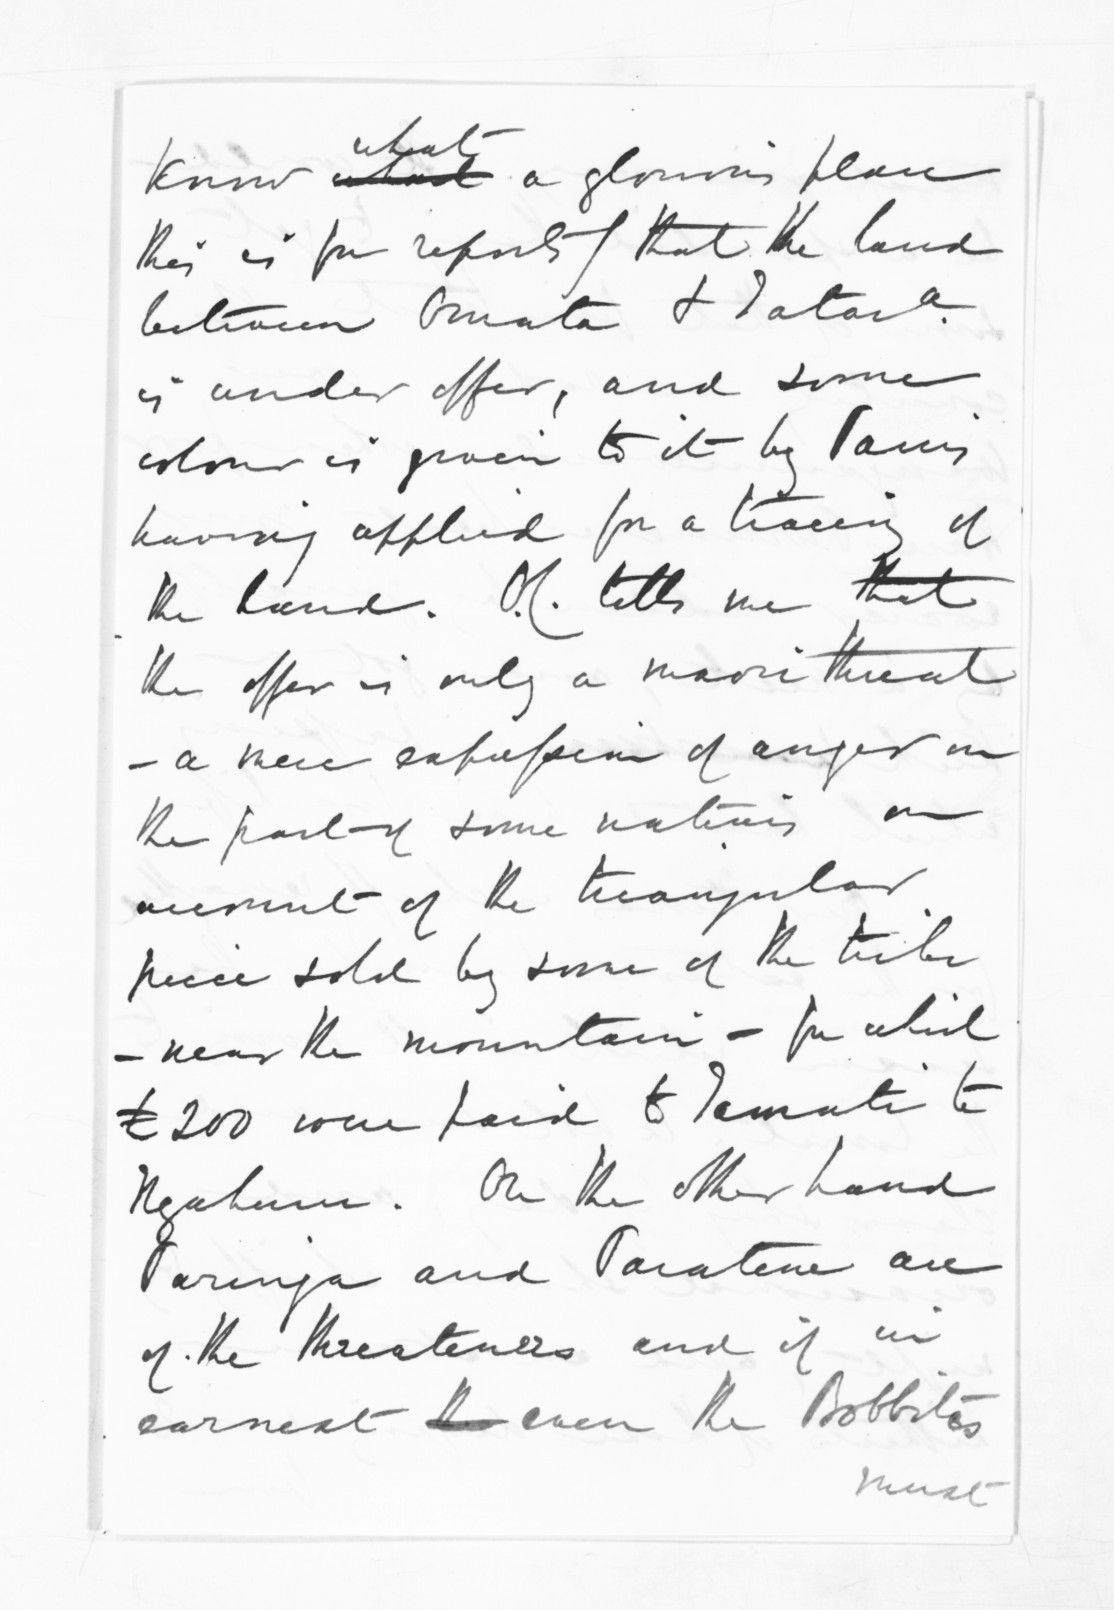 know what a glorious place
this is for reports) that the land
between Omata & Tatara
is under offer, and some
colour is given to it by Parris
having applied for a tracing of
the land. O.C. tells me that
the offer is only a maori threat
- a mere expression of anger on
the part of some natives on
account of the triangular
piece sold by some of the tribe
- near the mountain - for which
£200 were paid to Tamati te
Ngahuru. On the other hand
Paringa and Paratene are
of the threateners and if in
earnest the even the Bobbites
must